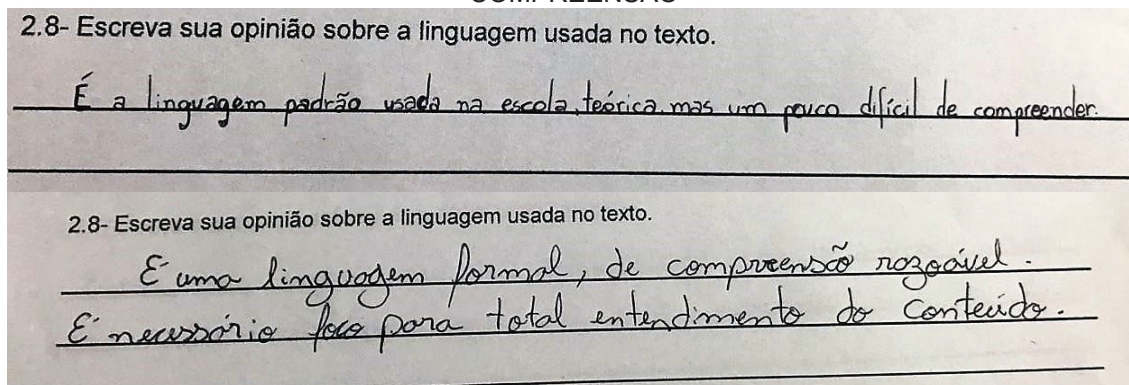 COMPREENSÃO
2.8- Escreva sua opinião sobre a linguagem usada no texto.
É a linguagem padrão usada na escola, teórica, mas um pouco difícil de compreender.
2.8- Escreva sua opinião sobre a linguagem usada no texto.
É uma linguagem formal, de compreensão razoável.
É necessário foco para total entendimento do conteúdo.